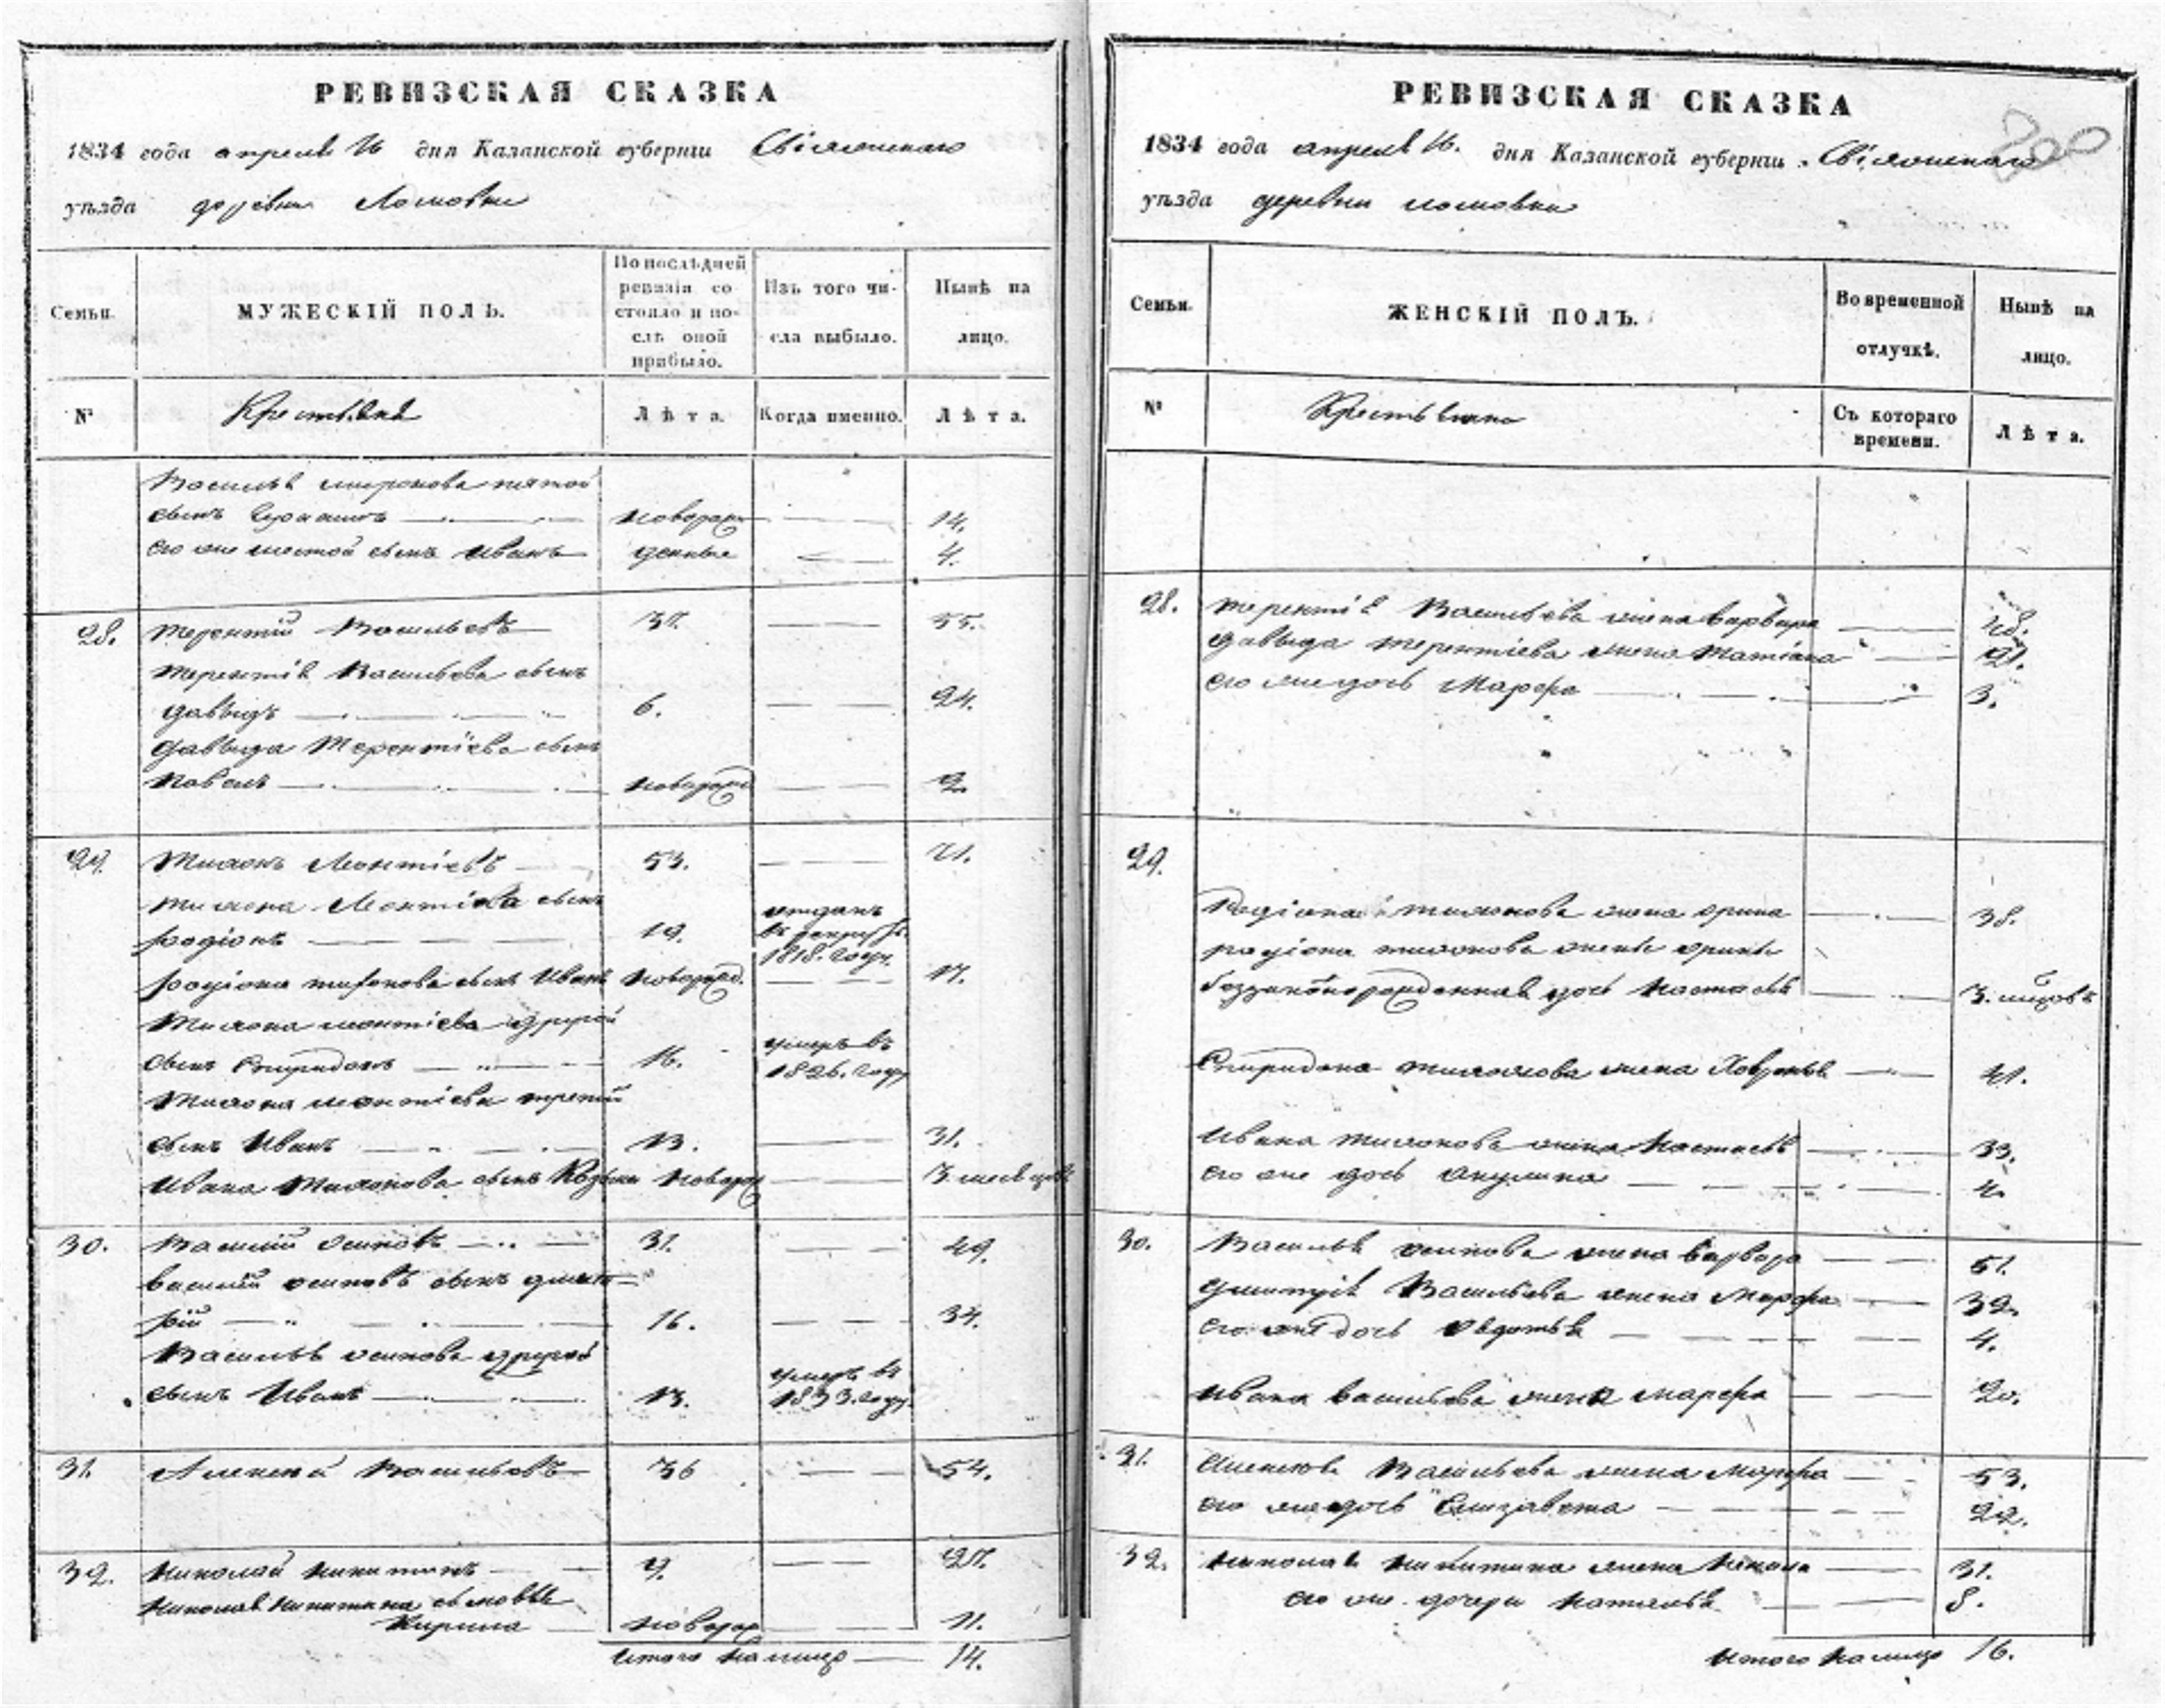 РЕВИЗСКАЯ СКАЗКА
1834 года апреля 16 дня Казанской губернии Свіяжскаго
уѣзда деревни Ломовки
Семьи.
МУЖЕСКІЙ ПОЛЪ.
По послѣдней ревизіи состояло и послѣ оной прибыло.
Изъ того числа выбыло.
Нынѣ на лицо.
№
Крестьяне
Лѣта.
Когда именно.
Лѣта.
Василья миронова пятой
сынъ новорож 14.
его же шестой сынъ Иванъ денные 4.
28. Терентій Васильевъ 37. 55.
Терентія Васильева сынъ
давыдъ 6. 24.
давыда Терентіева сынъ
Павелъ новорожд 2
29. Леонтіевъ 53. 71.
Леонтіева сынъ
родіонъ 19. отданъ въ рекруты 1818. году.
родіона сынъ Иванъ новорожд. 17.
леонтіева другой
сынъ Спиридонъ 16. умеръ въ 1826. году
леонтіева третій
сынъ Иванъ 13. 31.
Ивана сынъ Козьма новорож 3. месяцовъ
30. Василій осиповъ 31. 49.
василій осиповъ сынъ дмит-
рій 16. 34.
Василья осипова другой
сынъ Иванъ 13. умеръ въ 1833. году
31. Алексей Васильевъ 36 54.
32. Николай Никитинъ 9. 27.
Николая Никитина сыновья
Кирила новорож 11.
Итого на лицо 14.
РЕВИЗСКАЯ СКАЗКА
200
1834 года апреля 16. дня Казанской губернии Свіяжскаго
уѣзда деревни ломовки
Семьи.
ЖЕНСКІЙ ПОЛЪ.
Во временной отлучкѣ.
Нынѣ на лицо.
№
Съ котораго времени.
Лѣта.
28. терентія Васильева жена варвара
давыда терентіева жена татіана 21.
его же дочь Марфа 3.
29.
Родіона жена орина 38.
родіона жены орины
дочь Настасья 3. мцовъ
Спиридона жена Ховронья 41.
Ивана жена Настасья 33.
его же дочь акулина 4.
30. Василья осипова жена варвара 51.
дмитрія Васильева жена Марфа 32.
его же дочь Авдотья 4.
Ивана васильева жена марфа 20.
31. Алексея Васильева жена Марфа 53.
его же дочь Елизавета 22.
32. николая никитина жена 31.
его же дочери наталья 8.
Итого на лицо 16.